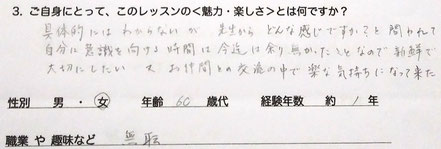 3. ご自身にとって、このレッスンの<魅力・楽しさ>とは何ですか?
具体的には わからないが 先生から どんな感じですか?と 聞かれて
自分に意識を向ける時間は 今迄は余り無かったことなので 新鮮で
大切にしたい 又 お仲間との交流の中で 楽な気持ちになって来た
性別 男 ・ 女 年齢 60 歳代 経験年数 約 1 年
職業 や 趣味など 無職